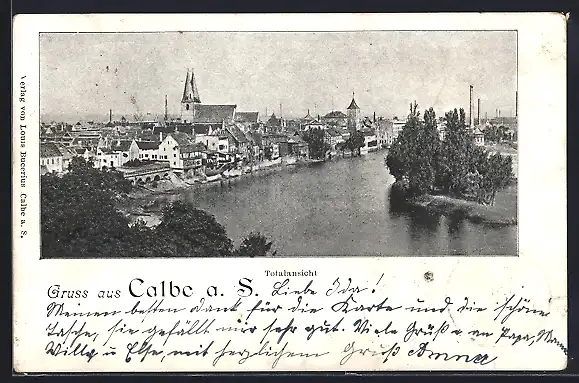 Verlag von Louis Bucerius Calbe a. S.
Totalansicht
Gruss aus Calbe a. S. Liebe Ida!
Meinen besten Dank für die Karte und die schöne
Tasche, sie gefällt mir sehr gut. Viele Grüße an Papa, Mama
Willy u Else, mit herzlichem Gruß Anna